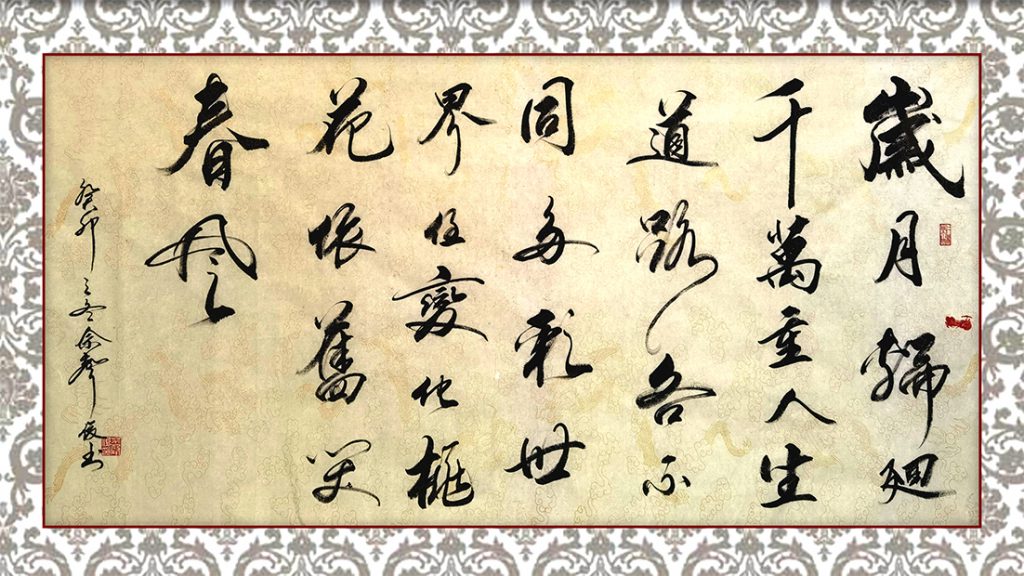 歲月輪廻
千萬重人生
道路各不
同多彩世
界任變化桃
花依舊笑
春風
癸卯之冬余